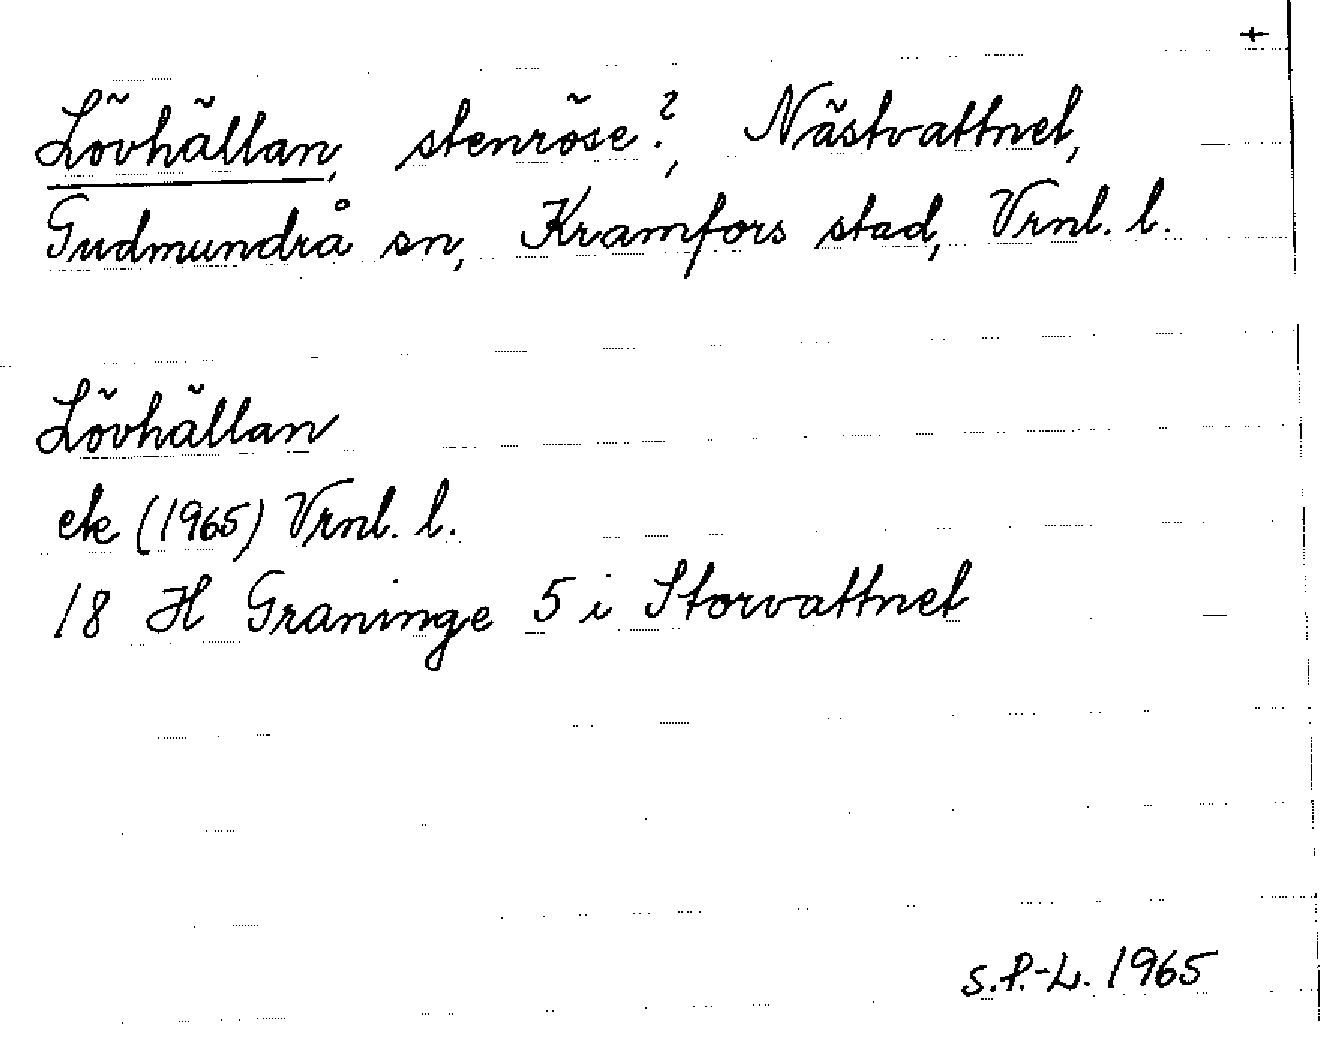 +
Lövhällan, stenröse?, Nästvattnet,
Gudmundrå sn, Kramfors stad, Vrnl. l.
Lövhällan
ek (1965) Vrnl. l.
18 H Graninge 5 i Storvattnet
S.P.-L. 1965